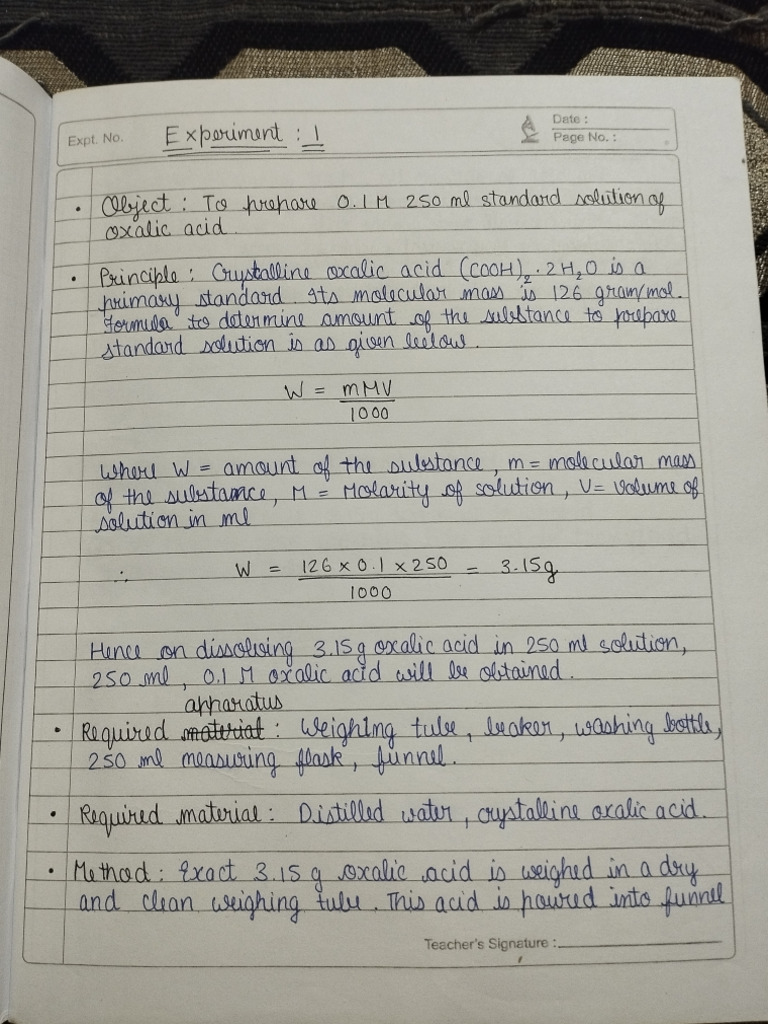 Expt. No. Experiment : 1
Date :
Page No. :
• Object : To prepare 0.1 M 250 ml standard solution of
oxalic acid
• Principle : Crystalline oxalic acid (COOH)₂ · 2H₂O is a
primary standard. Its molecular mass is 126 gram/mol.
Formula to determine amount of the substance to prepare
standard solution is as given below.
W = mMV
1000
where W = amount of the substance, m = molecular mass
of the substance, M = Molarity of solution, V = Volume of
solution in ml
∴ W = 126 × 0.1 × 250 = 3.15g
1000
Hence on dissolving 3.15 g oxalic acid in 250 ml solution,
250 ml, 0.1 M oxalic acid will be obtained.
apparatus
• Required material : Weighing tube, beaker, washing bottle,
250 ml measuring flask, funnel.
• Required material : Distilled water, crystalline oxalic acid.
• Method : Exact 3.15 g oxalic acid is weighed in a dry
and clean weighing tube. This acid is poured into funnel
Teacher's Signature :